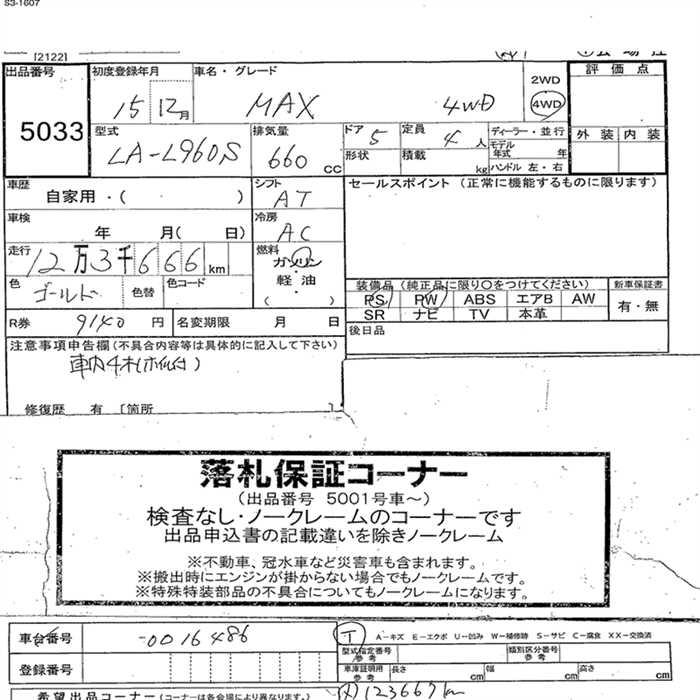 S3-1607
[2122]
出品番号 5033
初度登録年月 15 12月
車名・グレード MAX 4WD
2WD
4WD
評価点
外装 内装
型式 LA-L960S
排気量 660 CC
ドア 5
定員 4 人
形状
積載 kg
ディーラー・並行
モデル年式 年
ハンドル 左・右
車歴 自家用・( )
シフト AT
セールスポイント (正常に機能するものに限ります)
車検 年 月( 日)
冷房 AC
走行 12万3千666km
燃料 ガソリン・軽油・( )
色 ゴールド 色替 色コード
装備品 (純正品に限り○をつけてください) 新車保証書
PS PW ABS エアB AW 有・無
SR ナビ TV 本革
R券 9140 円 名変期限 月 日
後日品
注意事項申告欄 (不具合内容等は具体的に記入して下さい)
修復歴 有 [箇所
落札保証コーナー
(出品番号 5001号車～)
検査なし・ノークレームのコーナーです
出品申込書の記載違いを除きノークレーム
※不動車、冠水車など災害車も含まれます。
※搬出時にエンジンが掛からない場合でもノークレームです。
※特殊特装部品の不具合についてもノークレームになります。
車台番号 -0016486
T A-キズ E-エクボ U-凹み W-補修跡 S-サビ C-腐食 XX-交換済
型式指定番号 参考 類別区分番号 参考
登録番号
車庫証明用 参考 長さ cm 幅 cm 高さ cm
希望出品コーナー (コーナーは各会場により異なります。)
123667km